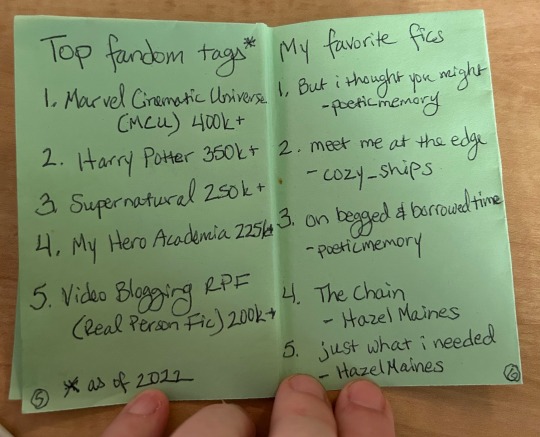 Top fandom tags*
1. Marvel Cinematic Universe
(MCU) 400k+
2. Harry Potter 350k+
3. Supernatural 250k+
4. My Hero Academia 225k+
5. Video Blogging RPF
(Real Person Fic) 200k+
* as of 2022
5
My favorite fics
1. But i thought you might
- poeticmemory
2. meet me at the edge
- cozy_ships
3. on begged & borrowed time
- poeticmemory
4. The Chain
- Hazel Maines
5. just what i needed
- Hazel Maines
6